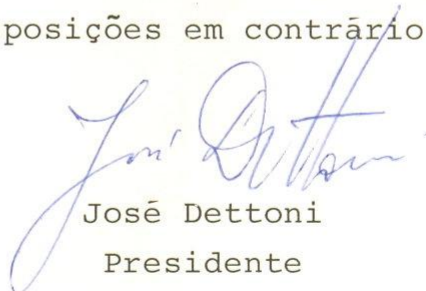 posições em contrário
José Dettoni
José Dettoni
Presidente